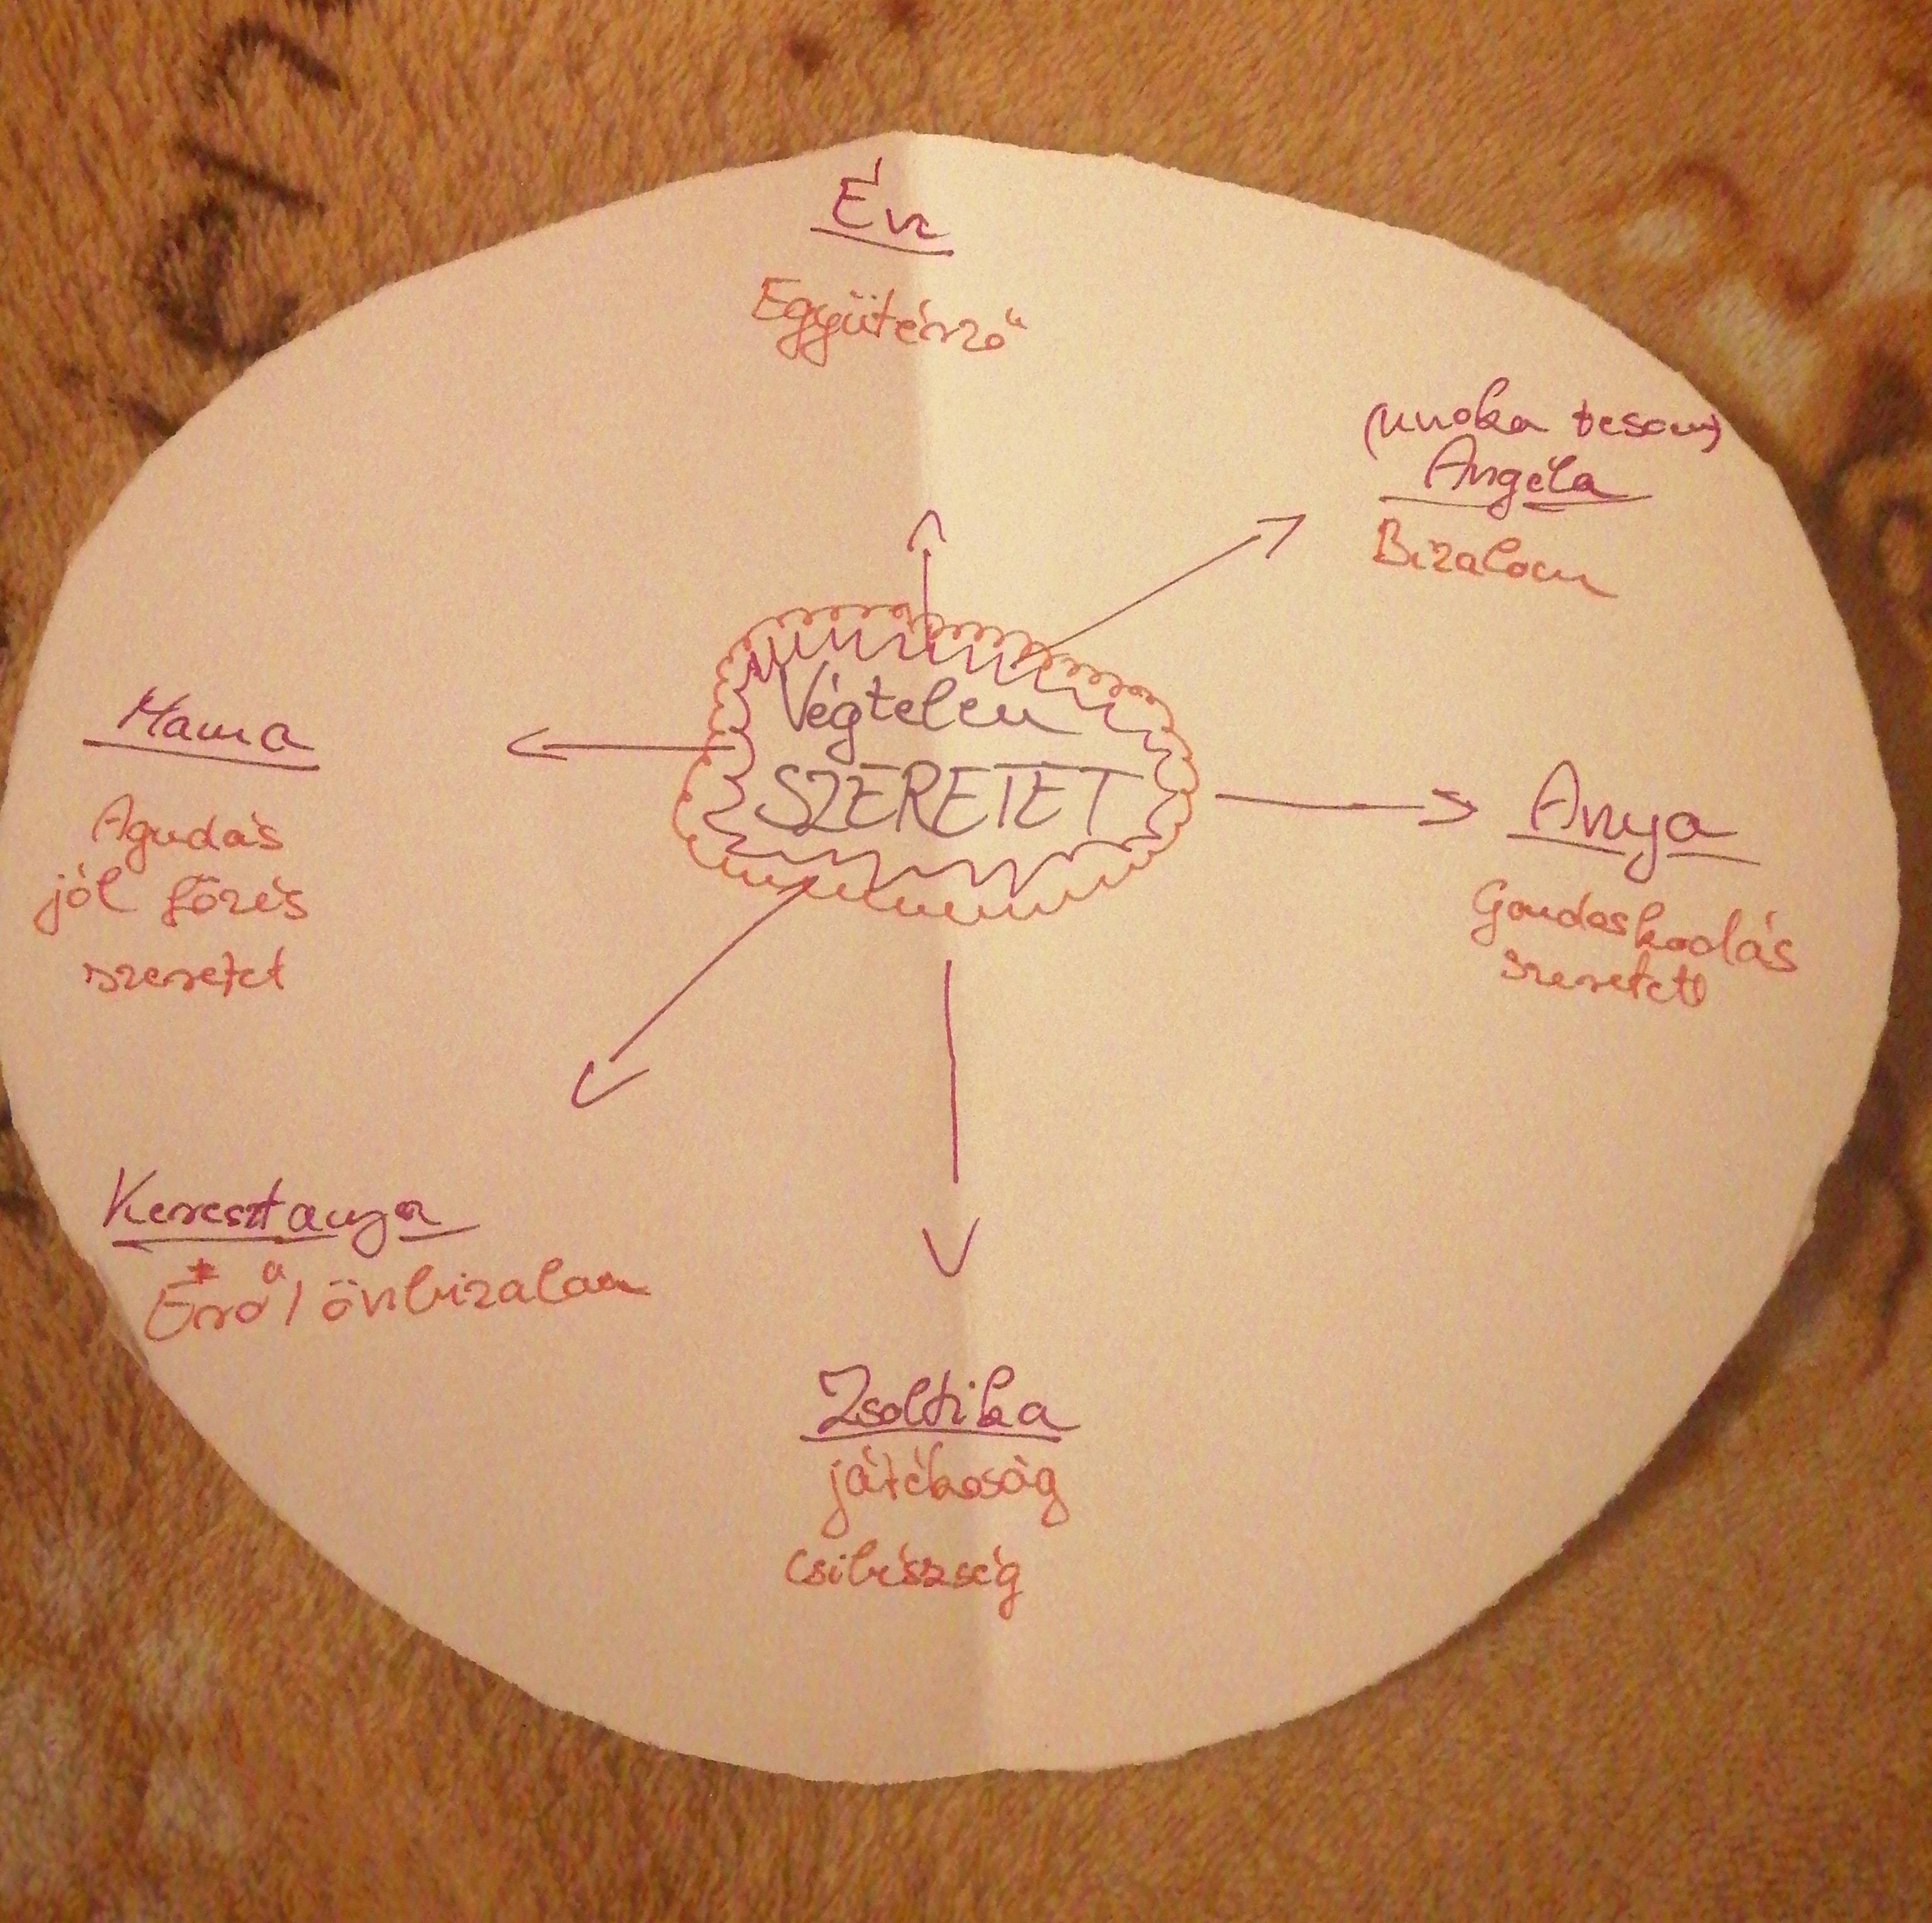 Évi
Együtérző
(unoka tesom)
Angéla
Bizalom
Végtelen
SZERETET
Mama
Agudás
jól főzés
szeretet
Anya
Gondoskodás
szeretett
Keresztanya
Erő / önbizalom
Zsoltika
játékoság
csibészség